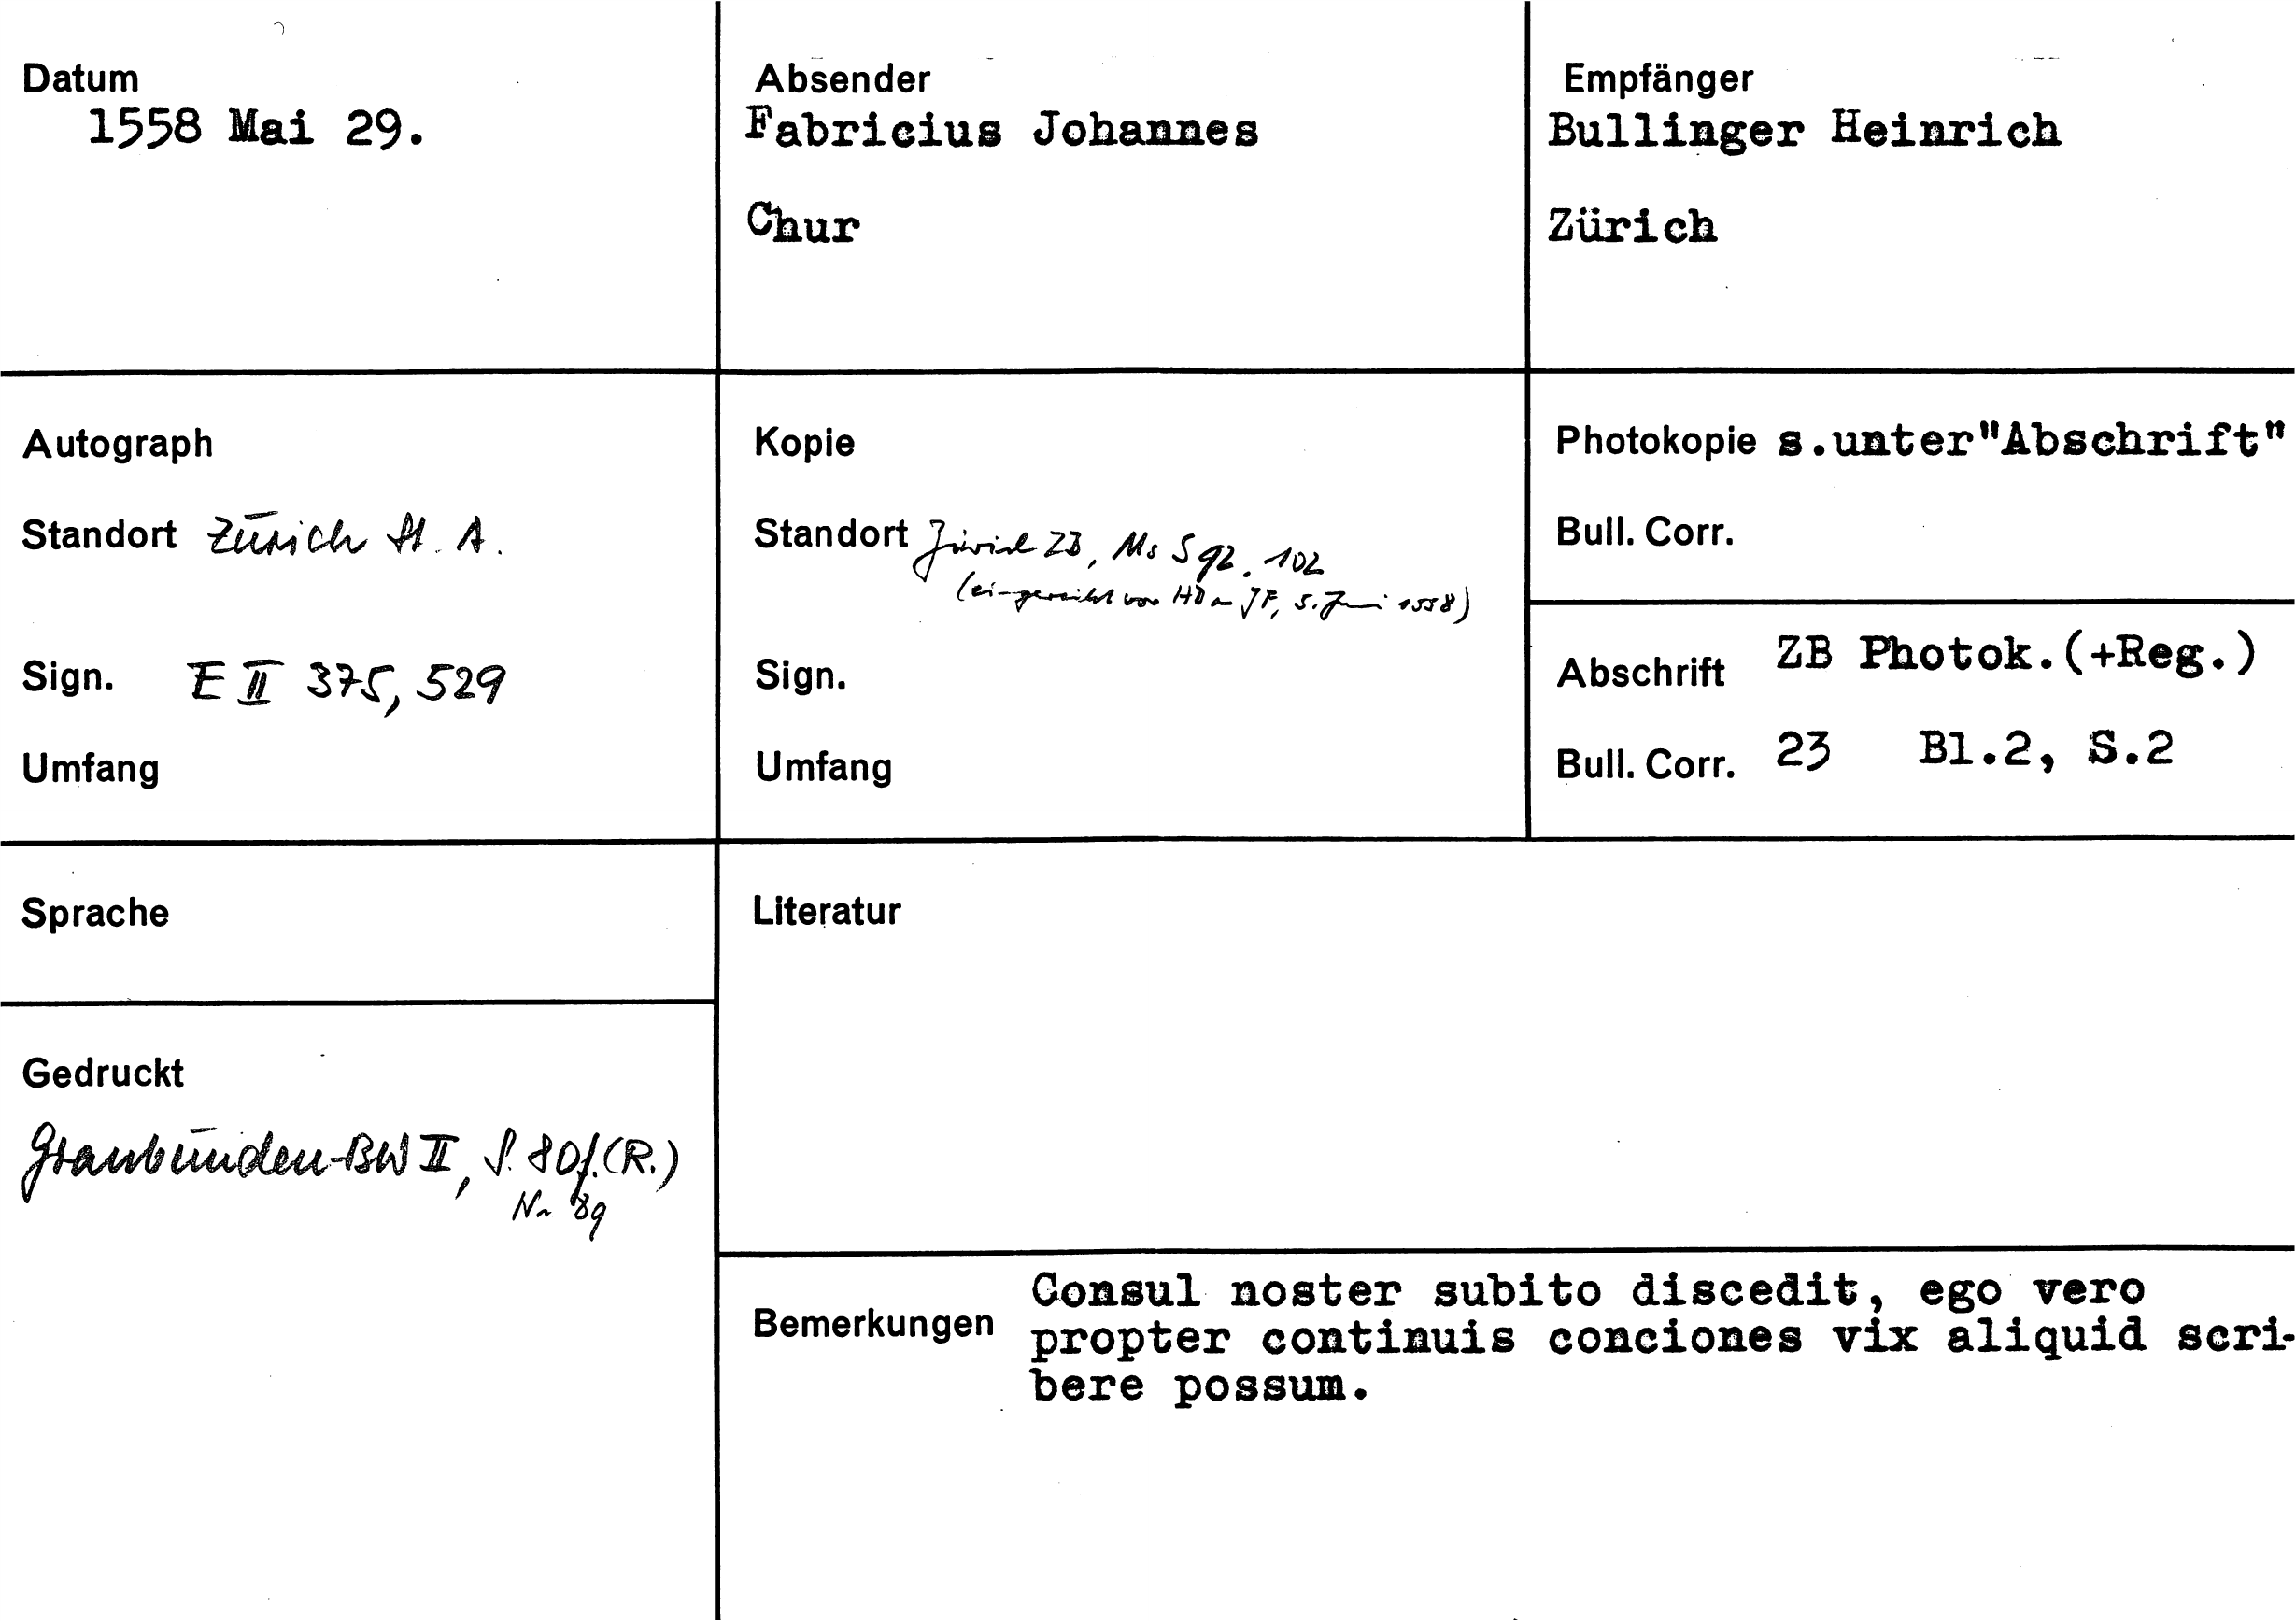 Datum
1558 Mai 29.
Absender
Fabricius Johannes
Chur
Empfänger
Bullinger Heinrich
Zürich
Autograph
Standort Zürich St. A.
Sign. E II 375, 529
Umfang
Kopie
Standort Zürich ZB, Ms S 92. 102
(eingereiht von HB an JF, 5. Juni 1558)
Sign.
Umfang
Photokopie s.unter"Abschrift"
Bull. Corr.
Abschrift ZB Photok.(+Reg.)
Bull. Corr. 23 Bl.2, S.2
Sprache
Gedruckt
Graubünden-BW II, S. 80f.(R.)
Nr 89
Literatur
Bemerkungen Consul noster subito discedit, ego vero
propter continuis conciones vix aliquid scri-
bere possum.